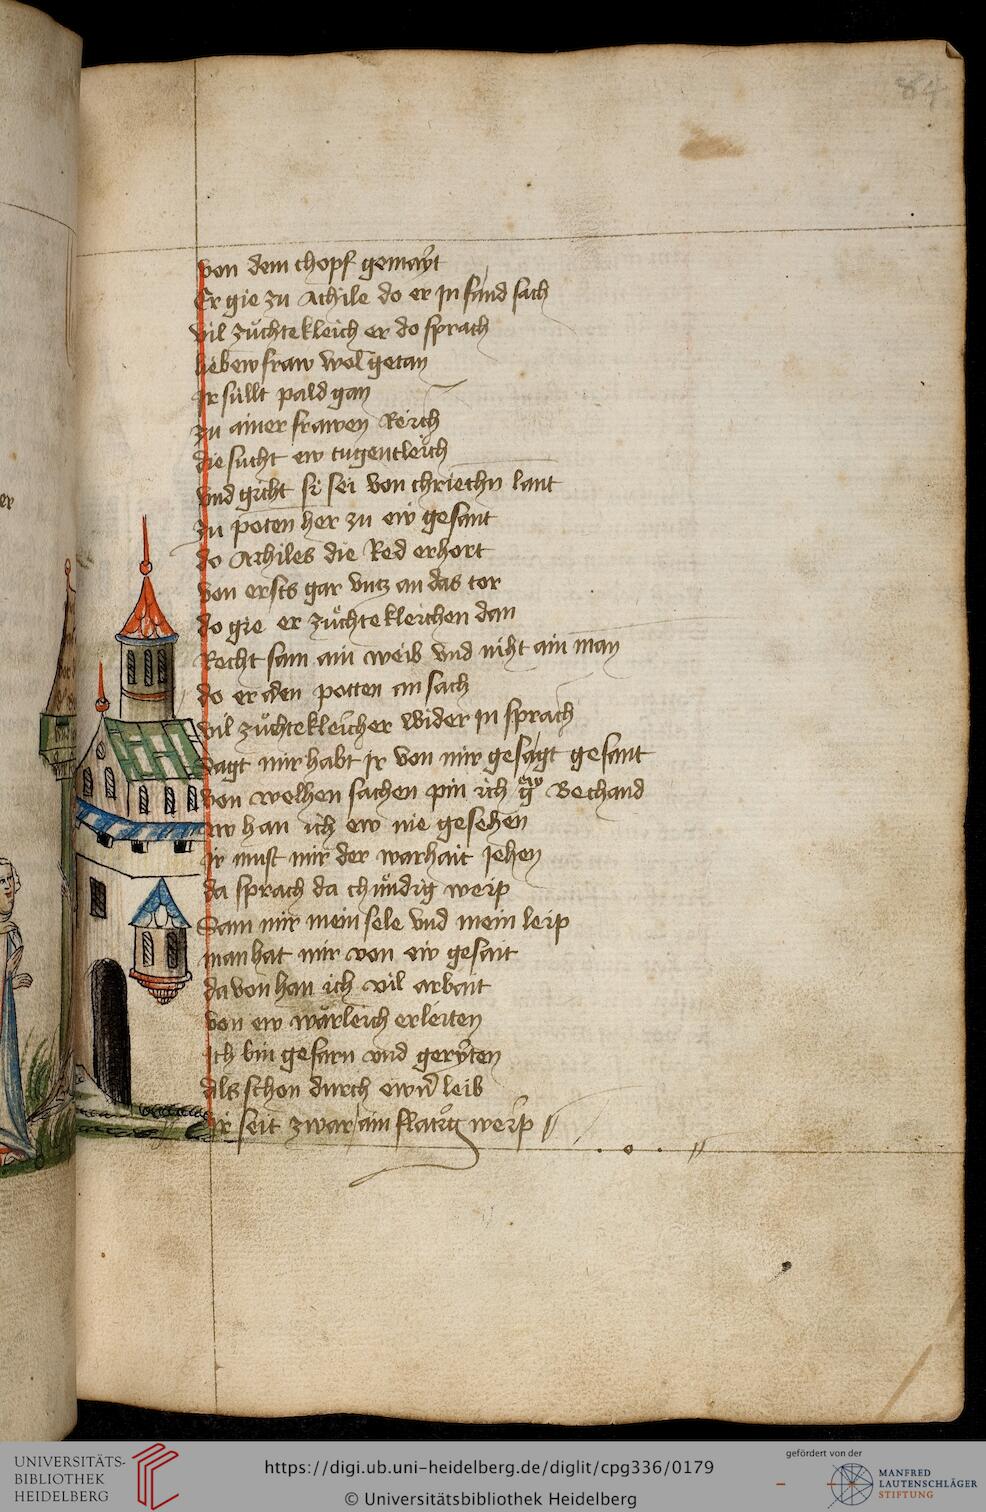 84
von dem chopf gemaÿt
Er gie zu Achile do er in fand sach
vil züchtekleich er do sprach
liebew fraw wol getan
Ir süllt pald gan
zu ainer frawen Reich
die sücht ew tugentleich
vnd gicht si sei von chriechn lant
zu poten her zu ew gesant
do Achiles die Red erhort
von ersts gar vntz an das tor
do gie er züchtekleichen dan
Recht sam ain weib vnd niht ain man
do er den potten an sach
vil züchtekleicher wider in sprach
sagt mir habt ir von mir gesagt gesant
von welhen sachen pin ich ew Bechand
nw han ich ew nie gesehen
ir must mir der warhait Jehen
da sprach da chündig weip
Sam mir mein sele vnd mein leip
man hat mir von ew gesait
da von han ich vil arbait
von ew wärleich erleiten
Ich bin gefarn vnd gerÿten
als schon durch ewrn leib
ir seit zwar ain weip
er
UNIVERSITÄTS-
BIBLIOTHEK
HEIDELBERG
https://digi.ub.uni-heidelberg.de/diglit/cpg336/0179
© Universitätsbibliothek Heidelberg
gefördert von der
MANFRED
LAUTENSCHLÄGER
STIFTUNG